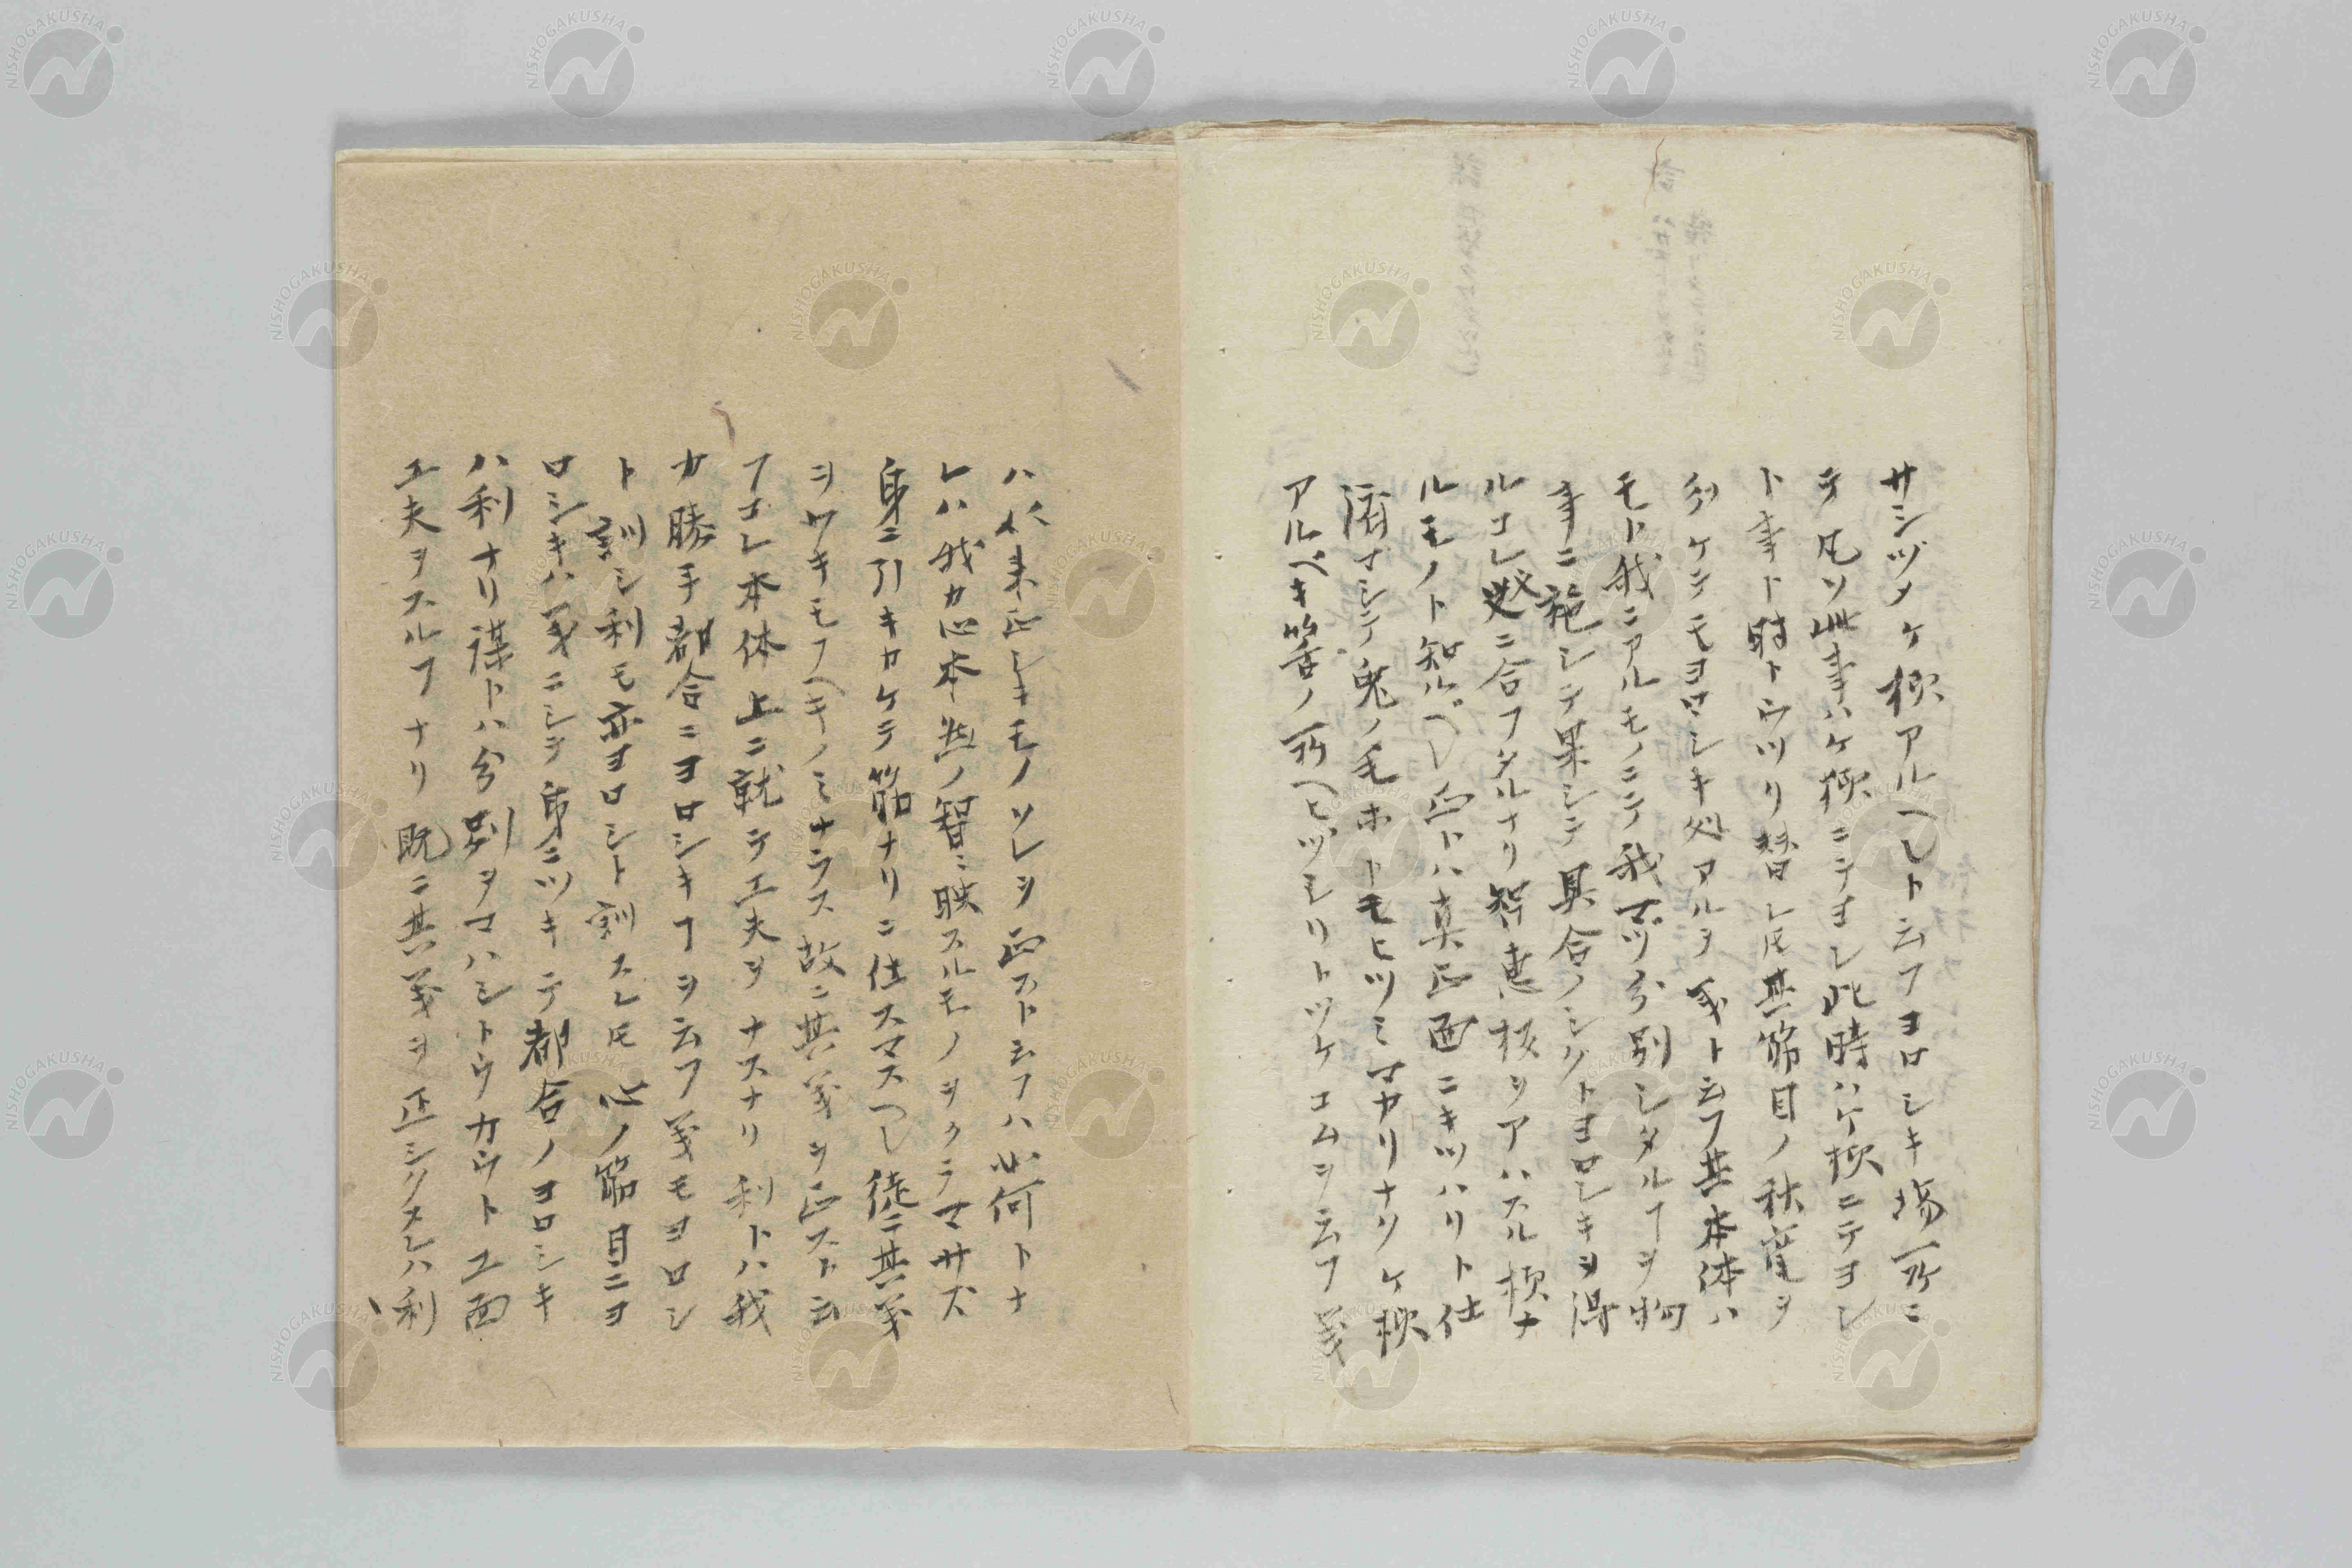 サシヅメケ様アルヘシト云フヨロシキ場所ニ
テ凡ソ此事ハケ様ニテヨシ此時ハケ様ニテヨシ
ト事ト時トウツリ替レ𪜈其筋目ノ秩竜ヲ
分ケテモヨロシキ処アルヲ義ト云フ其本体ハ
モト我ニアルモノニテ我マヅ分別シタルヿヲ物
事ニ施シテ果シテ具合ノシクトヨロシキヲ得
ルコレ処ニ合フタルナリ智恵核ヲアハスル様ナ
ルモノト知ルベシ正トハ真正面ニキツハリト仕
済マシテ兎ノ毛ホトモヒツミマカリナリケ様
アルベキ筈ノ所ヘヒヅミリトツケコムヲ云フ義
ハ从来正シキモノソレヲ正ストムフハ如何トナ
レハ我カ心本然ノ智ニ映スルモノヲクラマサズ
身ニ引キカケテ筋ナリニ仕スマスヘシ徒ニ其義
ヲワキモフヘキノミナラス故ニ其義ヲ正スト云
フコレ本体上ニ就テ工夫ヲナスナリ利トハ我
カ勝手都合ニヨロシキヿヲ云フ義モヨロシ
ト訓シ利モ亦ヨロシト訓スレ𪜈心ノ筋目ニヨ
ロシキハ義ニシテ身ニツキテ都合ノヨロシキ
ハ利ナリ謀トハ分別ヲマハシトウカウト工面
工夫ヲスルヿナリ既ニ其義ヲ正シクスレハ利
NISHOGAKUSHA